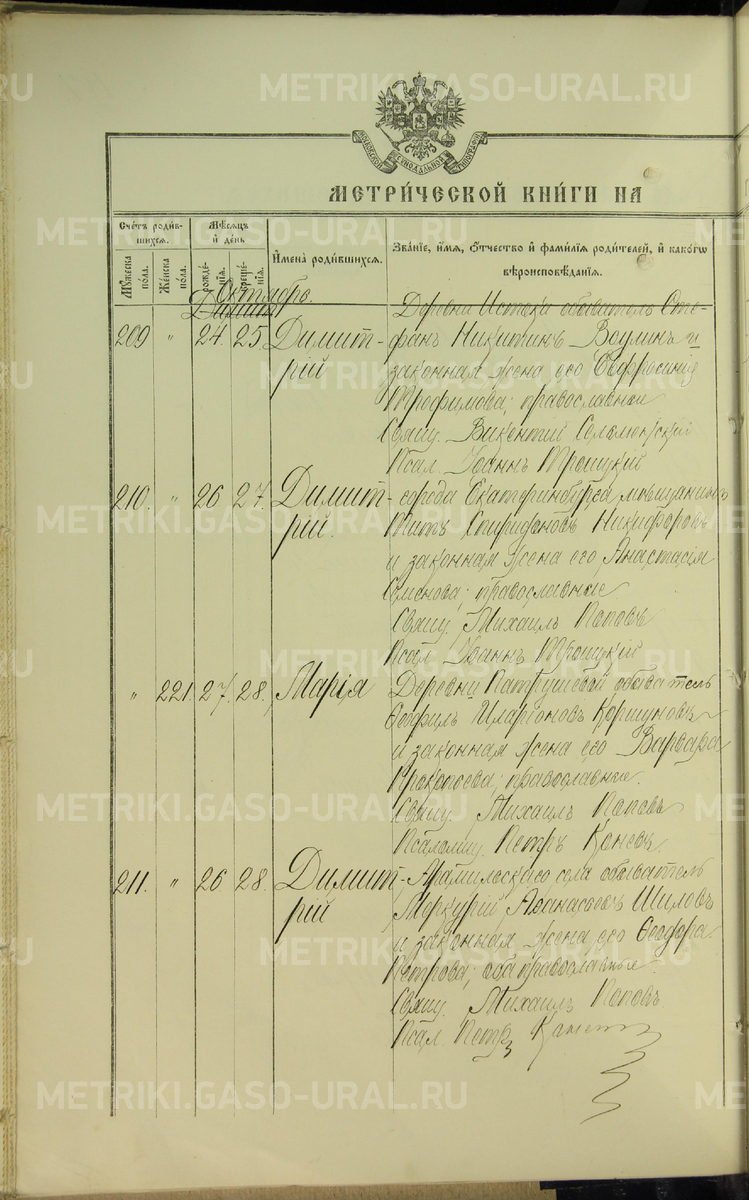 METRIKI.GASO-URAL.RU
МЕТРИЧЕСКОЙ КНИГИ НА
Счетъ родившихся.
Мѣсяцъ и день
Мужеска пола.
Женска пола.
рожденія.
крещенія.
Имена родившихся.
Званіе, имя, отчество и фамилія родителей, и какого вѣроисповѣданія.
Октябрь.
209 " 24 25 Димит- Деревни Истока обыватель Сте-
рій фанъ Никитинъ Воулинъ и
законная жена его Евфросинія
Трофимова; православные
Свящ. Викентій
Псал. Іоаннъ Троицкій
210. " 26 27. Димит- города Екатеринбурга мѣщанинъ
рій. Титъ Спиридоновъ Никифоровъ
и законная жена его Анастасія
Семенова; православные
Свящ. Михаилъ Поповъ
Псал. Іоаннъ Троицкій
" 221. 27. 28. Марія Деревни Патрушевой обыватель
Ѳеофилъ Иларіоновъ Коршуновъ
и законная жена его Варвара
Прокопьева; православные.
Свящ. Михаилъ Поповъ
Псаломщ. Петръ Каневъ.
211. " 26 28 Димит- Арамильскаго села обыватель
рій Меркурій Аѳанасьевъ Шиловъ
и законная жена его Ѳеодора
Петрова; оба православные.
Свящ. Михаилъ Поповъ
Псал. Петръ Каневъ